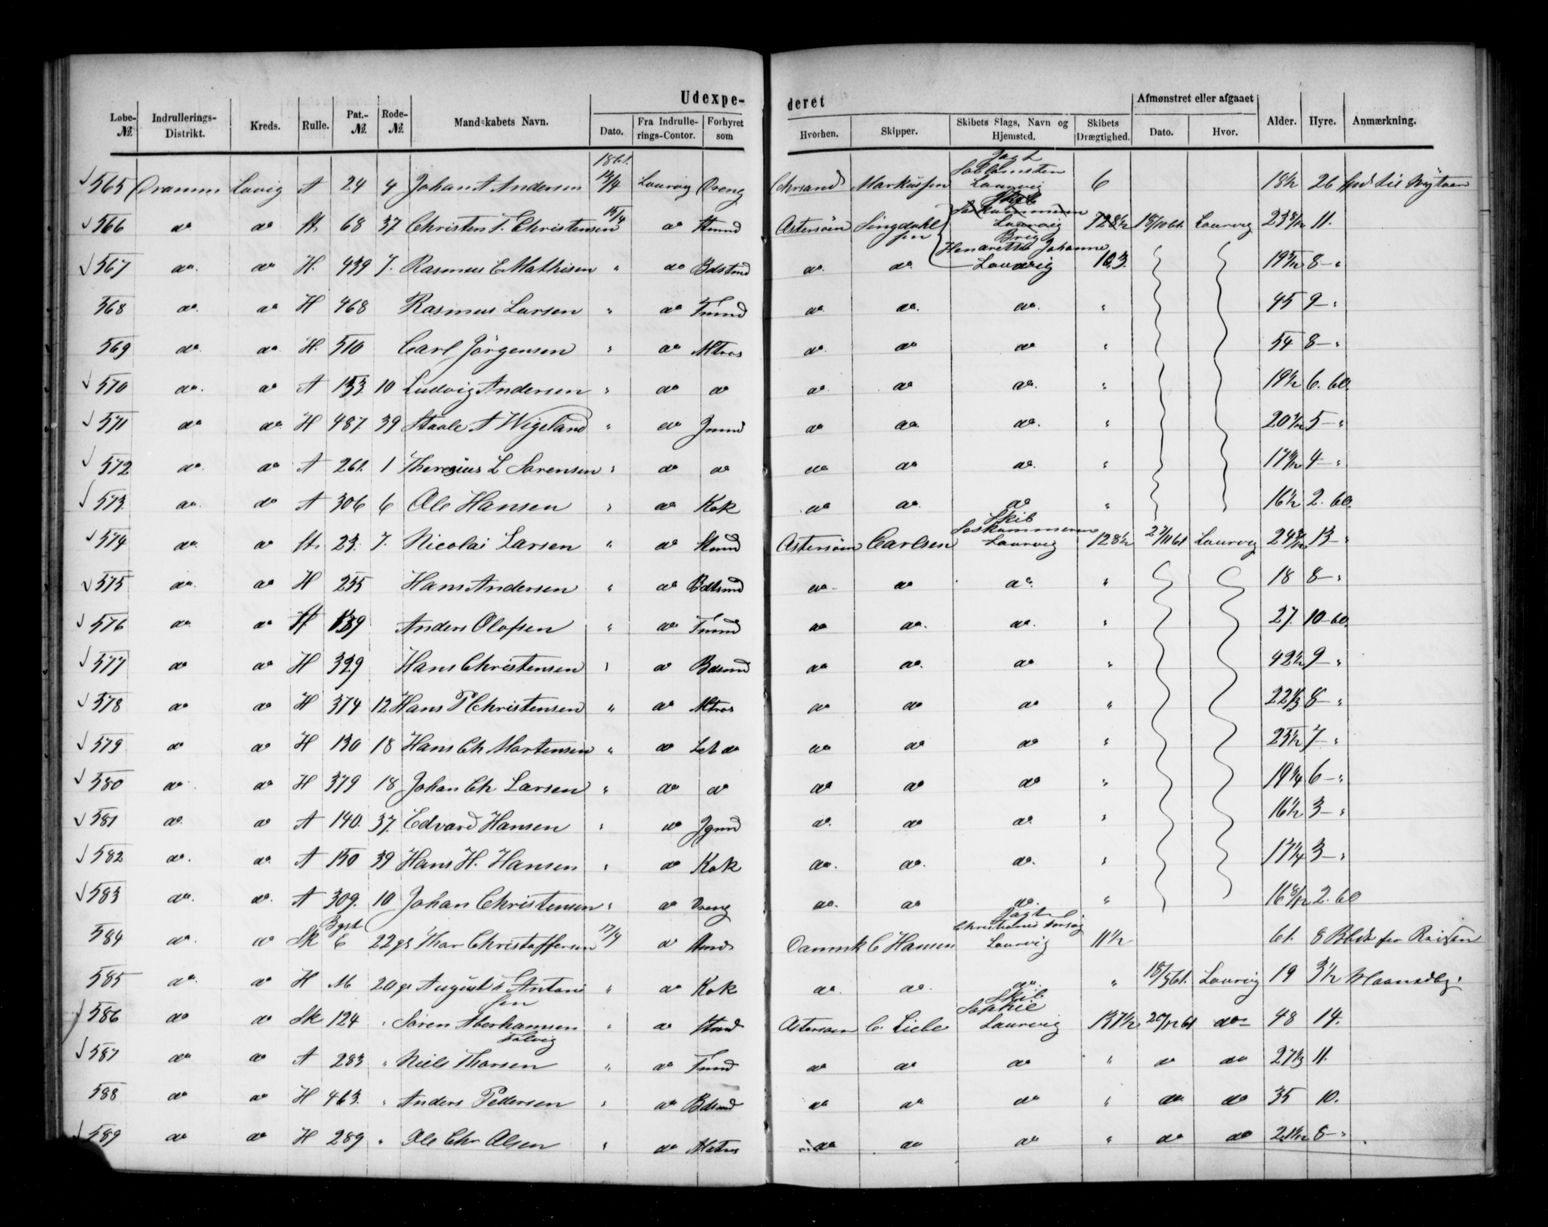 Udexpe- deret
Løbe-№ Indrullerings-Distrikt. Kreds. Rulle. Pat.-№ Rode-№ Mandskabets Navn. Dato. Fra Indrulle-rings-Contor. Forhyret som Hvorhen. Skipper. Skibets Slags, Navn og Hjemsted. Skibets Drægtighed. Afmønstret eller afgaaet Dato. Hvor. Alder. Hyre. Anmærkning.
1861
565 Dramm Lavig A 24 9 Johan A Andersen 14/4 Laurvig Dreng Chrsand Markussen Jagt Laurvig 6 18½ 26
566 do do H. 68 37 Christen F. Christensen 15/4 do Stmnd Østersøen Lingdahlsen Skib Laurvig 128½ 18/10 61. Laurvig 23 11.
567 do. do H. 439 7. Rasmus C Mathisen " do Bdstmd do. do. Brig Henarette Johanne Laurvig 103. 19 8 - "
568 do do H 468 Rasmus Larsen " do Tmmd do. do. do. " 45 9 - "
569 do. do. H. 510 Carl Jørgensen " do Mtros do. do do " 54 8 - "
570 do. do A 153 10 Ludvig Andersen " do do do. do do. " 19½ 6. 60.
571 do do H 487 39 Staale A Wigeland " do Jmmd do do do. " 20 5 - "
572 do. do A 261. 1 Theresius L Sørensen " do do do do do. " 17 4 - "
573 do. do A 306 6 Ole Hansen " do Kok do do. do " 16½ 2. 60.
574 do. do H. 23. 7. Nicolai Larsen " do Stmnd Østersøen Carlsen Skib Laurvig 128½ 27/11 61 Laurvig 24 13 - "
575 do. do H 255 Hans Andersen " do Bdtsmd do. do do. " 18 8 - "
576 do do H 139 Anders Olafsen " do Tmmd do do. do. " 27. 10 - 60.
577 do do H 329 Hans Christensen " do Bdsmd do do. do " 42½ 9 - "
578 do do H 374 12 Hans P Christensen " do Mtros do. do do " 22 8 - "
579 do do H 130 18 Hans Ch Mortensen " do Let do do do do " 23½ 7 - "
580 do. do H 379 18 Johan Ch Larsen " do do do do do " 19¾ 6 - "
581 do. do A 140. 37. Edvard Hansen " do Jgmd do. do do " 16½ 3 - "
582 do. do. A 150 39 Hans H. Hansen " do Kok do. do. do. " 17¼ 3 - "
583 do. do. A 309. 10 Johan Christensen " do Dreng do. do do. " 16 2. 60
584 do. do Sk Bgst 6 22 Thor Christoffersen 17/4 do Danmk C Hansen Jagt Christianes Forsøg Laurvig 11½ 61. 8
585 do. do H M 20 August Antonsen " do Kok do. do. do " 18/5 61. Laurvig 19 3½
586 do do Sk 124 " Søren Aberhamsen Solvig " do Stmd Østersøen C Liebe Skib Sophie Laurvig 137½ 20/12 61 do 48 14.
587 do do A 283 " Niels Thorsen " do Tmmd do do do " do do 27 11.
588 do do H 463. " Anders Pedersen " do Bdsmd do do do " do do 35 10.
589 do do H 289 " Ole Chr Olsen " do Matros do do do " do do 21 8 - "